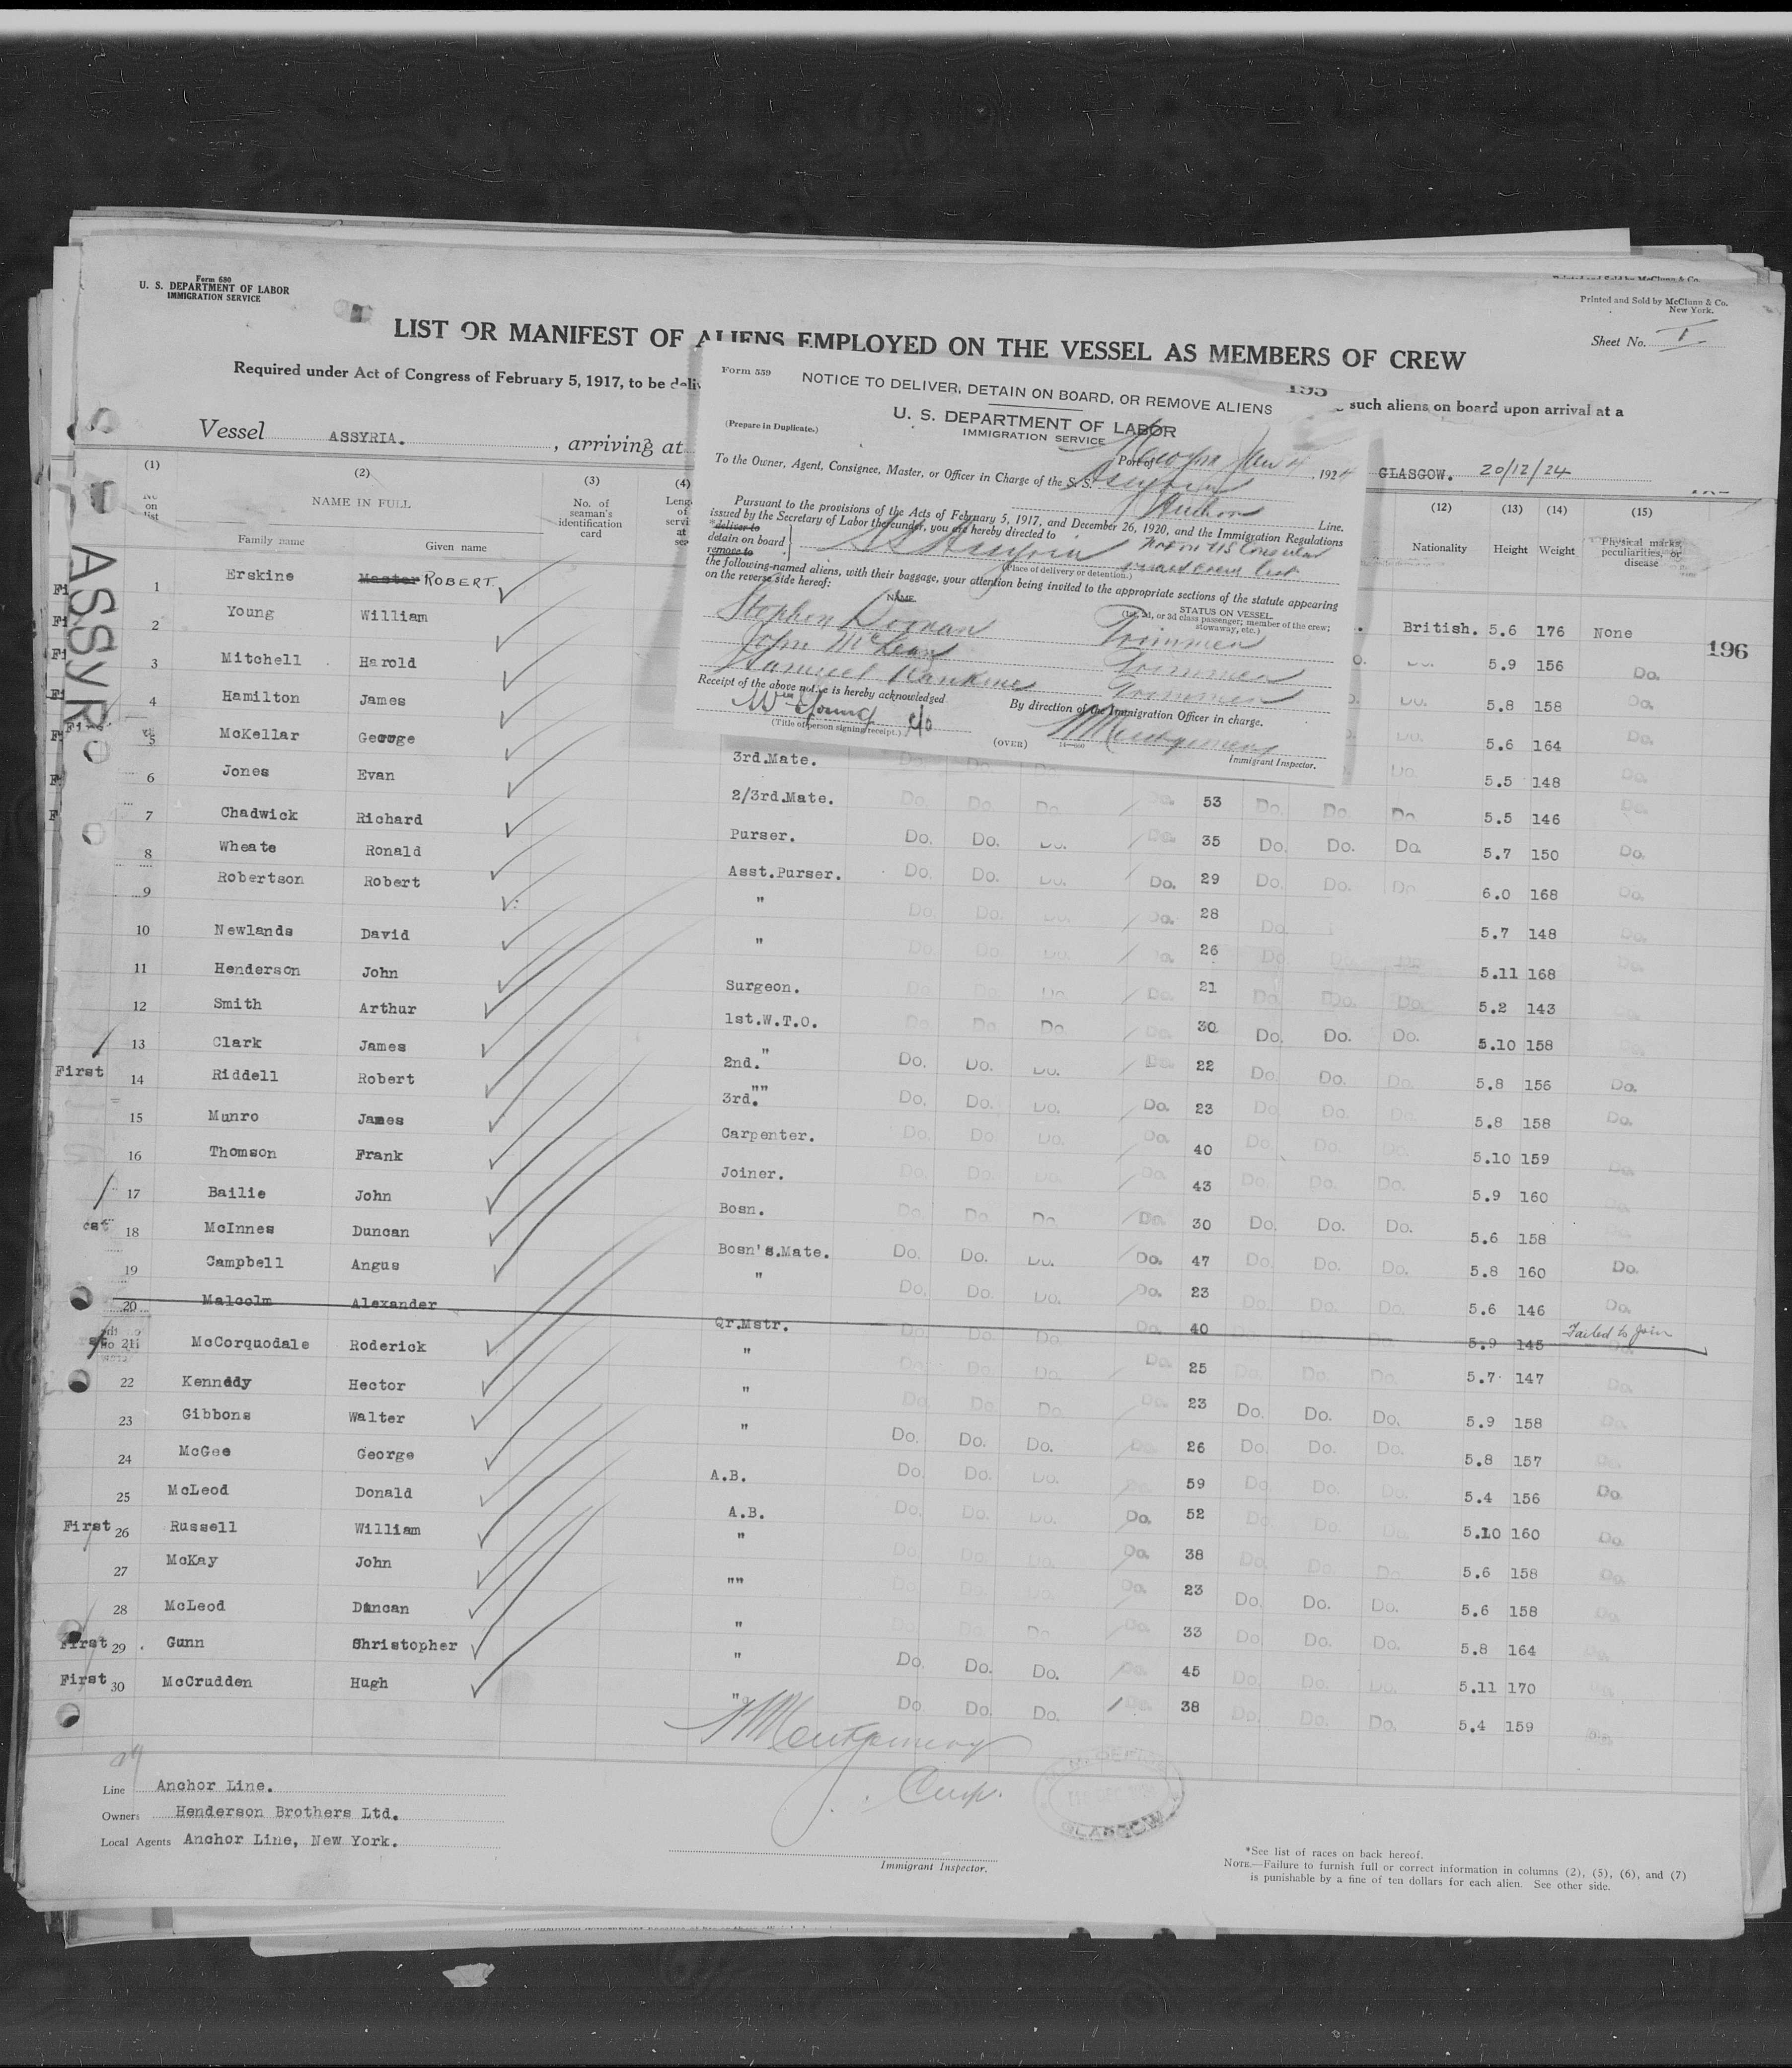 Form 680
U. S. DEPARTMENT OF LABOR
IMMIGRATION SERVICE
Printed and Sold by McClunn & Co.
New York.
Sheet No. I
LIST OR MANIFEST OF ALIENS EMPLOYED ON THE VESSEL AS MEMBERS OF CREW
Required under Act of Congress of February 5, 1917, to be
such aliens on board upon arrival at a
Vessel ASSYRIA. , arriving at
GLASGOW. 20/12/24
195
196
ASSYRIA
Form 559
NOTICE TO DELIVER, DETAIN ON BOARD, OR REMOVE ALIENS
U. S. DEPARTMENT OF LABOR
IMMIGRATION SERVICE
(Prepare in Duplicate.)
Port of Jan 4, 192
To the Owner, Agent, Consignee, Master, or Officer in Charge of the S. S. Assyria
Anchor Line.
Pursuant to the provisions of the Acts of February 5, 1917, and December 26, 1920, and the Immigration Regulations
issued by the Secretary of Labor thereunder, you are hereby directed to
*deliver to
detain on board
remove to
SS Assyria Not on US Consular
visaed crew list
(Place of delivery or detention.)
the following-named aliens, with their baggage, your attention being invited to the appropriate sections of the statute appearing
on the reverse side hereof:
NAME.
STATUS ON VESSEL.
(1st, 2d, or 3d class passenger; member of the crew;
stowaway, etc.)
Stephen Trimmer
John McLean Trimmer
Samuel Rankine Trimmer
Receipt of the above notice is hereby acknowledged
By direction of the Immigration Officer in charge.
Wm Young c/o
(Title of person signing receipt.)
(OVER)
Montgomery
Immigrant Inspector.
(1) (2) (3) (4) (12) (13) (14) (15)
No on list
NAME IN FULL
Family name Given name
No. of seaman's identification card
Nationality Height Weight Physical marks, peculiarities, or disease
1 Erskine Master ROBERT British. 5.6 176 None
2 Young William 5.9 156 Do.
3 Mitchell Harold 5.8 158 Do.
4 Hamilton James 5.6 164 Do.
5 McKellar George 3rd.Mate. Do. 5.5 148 Do.
6 Jones Evan 2/3rd.Mate. Do. Do. Do. Do. 53 Do. Do. Do. 5.5 146 Do.
7 Chadwick Richard Purser. Do. Do. Do. Do. 35 Do. Do. Do. 5.7 150 Do.
8 Wheate Ronald Asst.Purser. Do. Do. Do. Do. 29 Do. Do. Do. 6.0 168 Do.
9 Robertson Robert " Do. Do. Do. Do. 28 Do. 5.7 148 Do.
10 Newlands David " Do. Do. Do. Do. 26 Do. Do. Do. 5.11 168 Do.
11 Henderson John Surgeon. Do. Do. Do. Do. 21 Do. Do. Do. 5.2 143
12 Smith Arthur 1st.W.T.O. Do. Do. Do. Do. 30 Do. Do. Do. 5.10 158 Do.
13 Clark James 2nd. " Do. Do. Do. Do. 22 Do. Do. Do. 5.8 156 Do.
First 14 Riddell Robert 3rd. "" Do. Do. Do. Do. 23 Do. Do. Do. 5.8 158 Do.
15 Munro James Carpenter. Do. Do. Do. Do. 40 Do. Do. Do. 5.10 159 Do.
16 Thomson Frank Joiner. Do. Do. Do. Do. 43 Do. Do. Do. 5.9 160
17 Bailie John Bosn. Do. Do. Do. Do. 30 Do. Do. Do. 5.6 158
18 McInnes Duncan Bosn's.Mate. Do. Do. Do. Do. 47 Do. Do. Do. 5.8 160 Do.
19 Campbell Angus " Do. Do. Do. Do. 23 Do. Do. Do. 5.6 146 Do.
20 Malcolm Alexander Qr.Mstr. Do. Do. Do. Do. 40 Do. Do. 5.9 145 Failed to Join
21 McCorquodale Roderick " Do. Do. Do. Do. 25 Do. Do. Do. 5.7 147 Do.
22 Kennddy Hector " Do. Do. Do. Do. 23 Do. Do. Do. 5.9 158 Do.
23 Gibbons Walter " Do. Do. Do. Do. 26 Do. Do. Do. 5.8 157 Do.
24 McGee George A.B. Do. Do. Do. Do. 59 Do. Do. Do. 5.4 156 Do.
25 McLeod Donald A.B. Do. Do. Do. Do. 52 Do. Do. Do. 5.10 160 Do.
First 26 Russell William " Do. Do. Do. Do. 38 Do. Do. Do. 5.6 158 Do.
27 McKay John "" Do. Do. Do. Do. 23 Do. Do. Do. 5.6 158 Do.
28 McLeod Duncan " Do. Do. 33 Do. Do. Do. 5.8 164 Do.
First 29 Gunn Christopher " Do. Do. Do. Do. 45 Do. Do. Do. 5.11 170 Do.
First 30 McCrudden Hugh " Do. Do. Do. Do. 38 Do. Do. Do. 5.4 159 Do.
Montgomery
Insp.
GLASGOW
Line Anchor Line.
Owners Henderson Brothers Ltd.
Local Agents Anchor Line, New York.
Immigrant Inspector.
*See list of races on back hereof.
NOTE.—Failure to furnish full or correct information in columns (2), (5), (6), and (7)
is punishable by a fine of ten dollars for each alien. See other side.